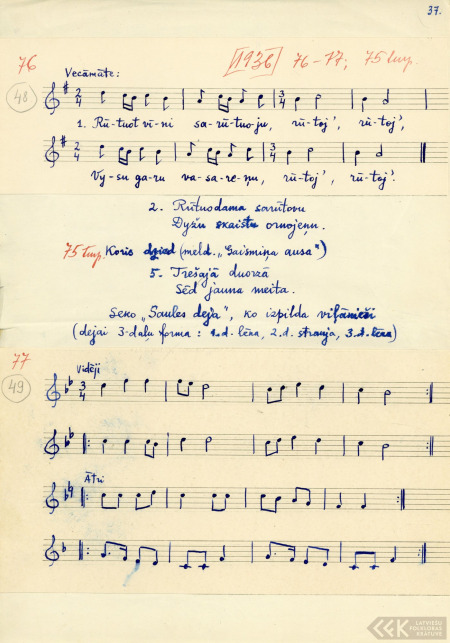 37.
76 [1936] 76-77; 75 tmp.
Vecāmāte:
48
2/4 3/4
1. Rū-tuot vī-ni sa-rū-tuo-ju, rū-toj', rū-toj',
2/4 3/4
Vy-su ga-ru va-sa-re-ņu, rū-toj', rū-toj'.
2. Rūtuodama sarūtovu
Dyžu skaistu ornojeņu.
75 tmp. Koris dzied (meld. „Gaismiņa ausa")
5. Trešajā duorzā
Sēd jauna meita.
Seko „Saules deja", ko izpilda viļāmieši
(dejai 3-daļu forma: 1.d. lēna, 2.d. strauja, 3.d. lēna)
77
Vidēji
49
3/4
Ātri
LATVIEŠU
FOLKLORAS
KRĀTUVE